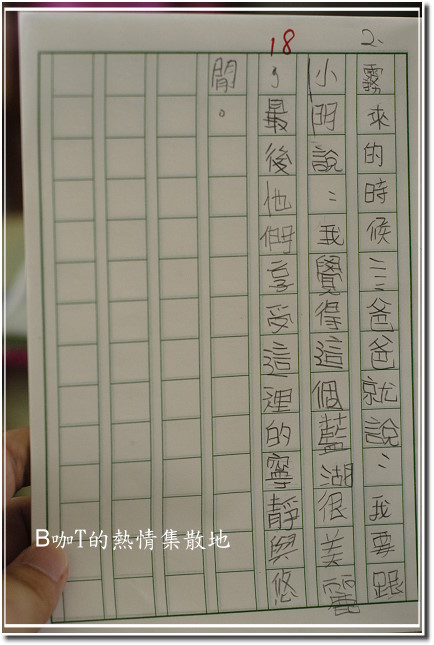 2.
18
霧來的時候⋯⋯爸爸就說：我要跟
小明說：我覺得這個藍湖很美麗
，最後他們享受這裡的寧靜與悠
閒。
B咖T的熱情集散地